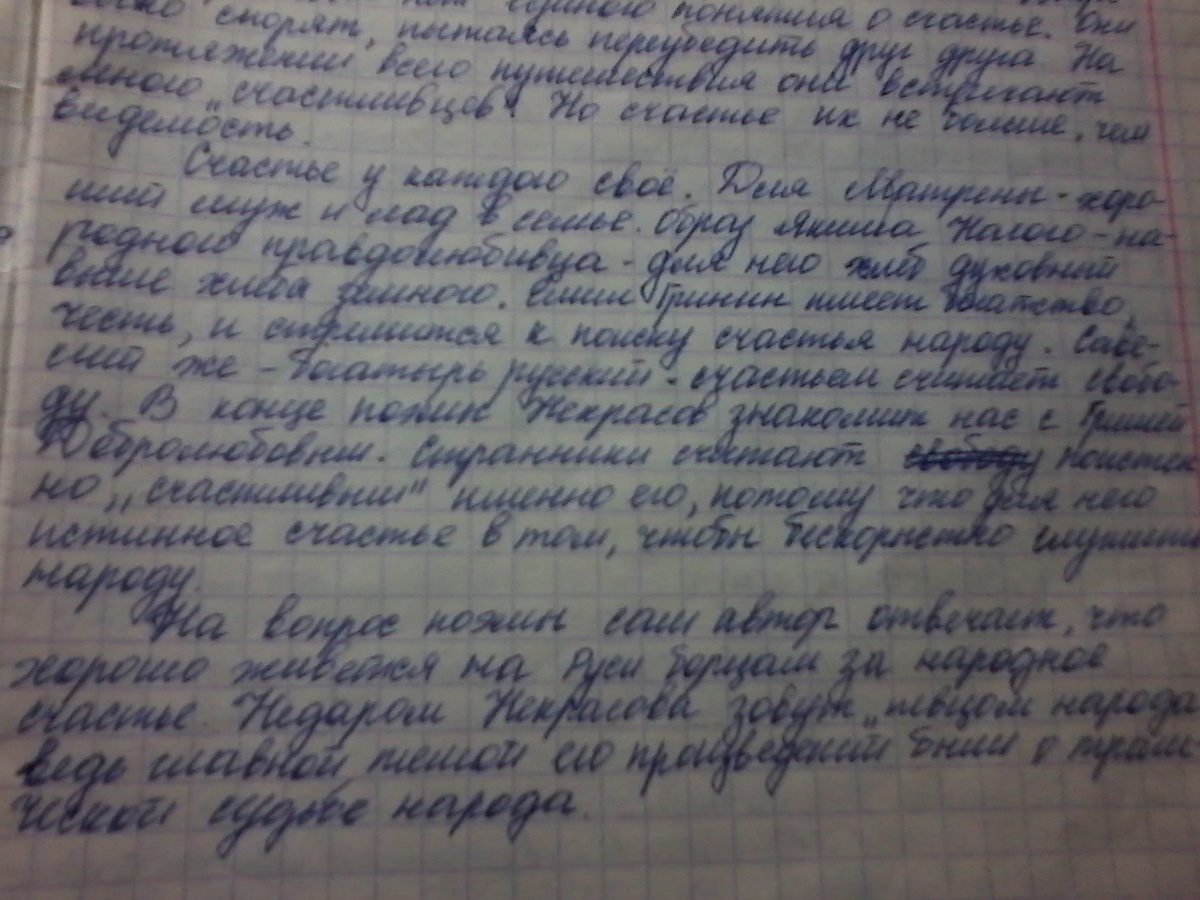 нет единого понятия о счастье. Они
спорят, пытаясь переубедить друг друга. На
протяжении всего путешествия они встречают
много „счастливцев". Но счастье их не больше, чем
видемость.
Счастье у каждого своё. Для Матрены - хоро-
ший муж и лад в семье. Образ Якима Нагого - на-
родного правдолюбивца - для него хлеб духовный
выше хлеба земного. Ермил Гирин имеет богатство,
честь, и стремится к поиску счастья народу. Саве-
лий же - богатырь русский - счастьем считает свобо-
ду. В конце поэмы Некрасов знакомит нас с Гришей
Добролюбовым. Странники считают свободу поистин
но „счастливым" именно его, потому что для него
истинное счастье в том, чтобы бескорыстно служить
народу.
На вопрос поэмы сам автор отвечает, что
хорошо живётся на Руси борцам за народное
счастье. Недаром Некрасова зовут „певцом народа
ведь главной темой его произведений были о траги
ческой судьбе народа.